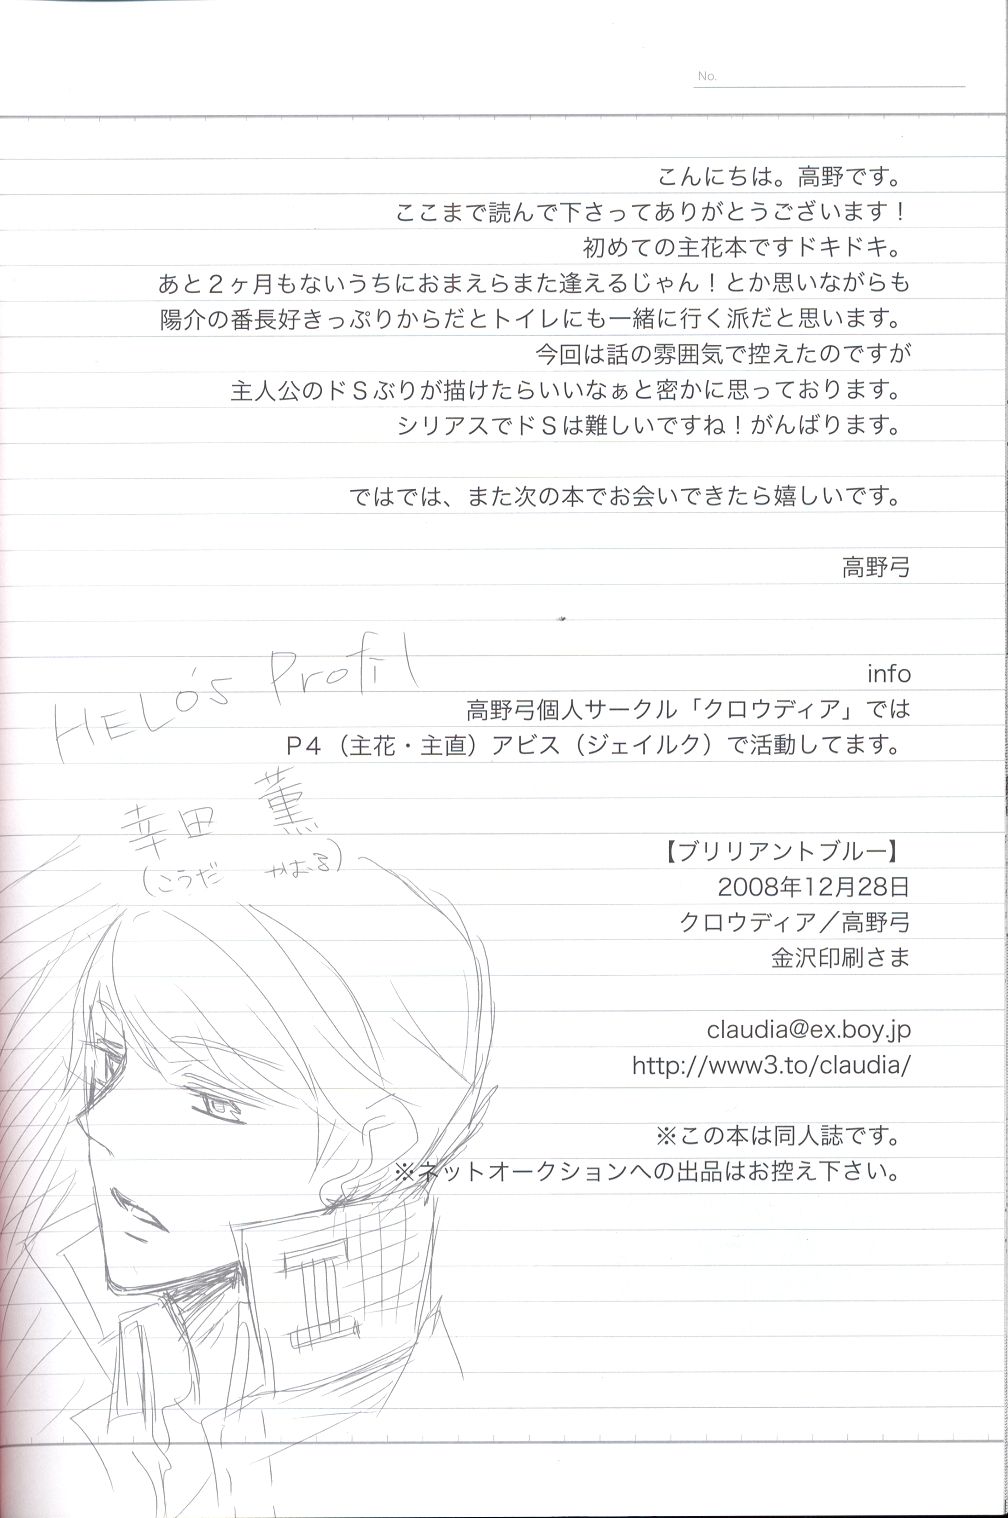 No.
こんにちは。高野です。
ここまで読んで下さってありがとうございます！
初めての主花本ですドキドキ。
あと２ヶ月もないうちにおまえらまた逢えるじゃん！とか思いながらも
陽介の番長好きっぷりからだとトイレにも一緒に行く派だと思います。
今回は話の雰囲気で控えたのですが
主人公のドＳぶりが描けたらいいなぁと密かに思っております。
シリアスでドＳは難しいですね！がんばります。
ではでは、また次の本でお会いできたら嬉しいです。
高野弓
HELO's Profil
info
高野弓個人サークル「クロウディア」では
P４（主花・主直）アビス（ジェイルク）で活動してます。
幸田 薫
(こうだ かおる)
【ブリリアントブルー】
2008年12月28日
クロウディア／高野弓
金沢印刷さま
claudia@ex.boy.jp
http://www3.to/claudia/
※この本は同人誌です。
※ネットオークションへの出品はお控え下さい。